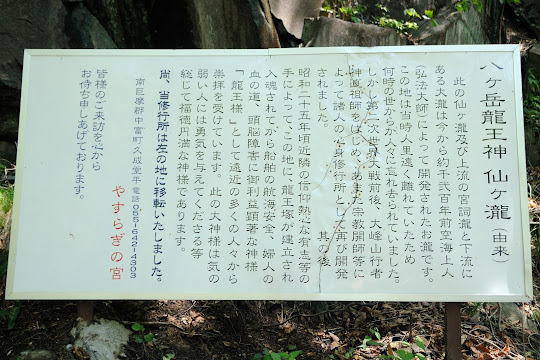 八ヶ岳龍王神 仙ヶ瀧（由来）
此の仙ヶ瀧及び上流の宮詞瀧と下流に
ある大瀧は今から約千弐百年前空海上人
（弘法大師）によって開発されたお瀧です。
この地は当時人里遠く離れていたため
何時の世からか人々に忘れ去られていました。
しかし第二次世界大戦前後、大峰山行者
神直祖師をはじめ、あまた宗教開師等に
よって諸人のお修行所として再び開発
されました。 其の後
昭和二十五年頃近隣の信仰熱心な有志等の
手によって、この地に、龍王塚が建立され
入魂されてから船舶の航海安全、婦人の
血の道、頭脳障害に御利益顕著な神様
「龍王様」として遠近の多くの人々から
崇拝を受けています。此の大神様は気の
弱い人には勇気を与えてくださる等
総じて福徳円満な神様であります。
尚、当修行所は左の地に移転いたしました。
南巨摩郡中富町久成堂平 電話0556-42-4303
やすらぎの宮
皆様のご来訪を心から
お待ち申しあげております。